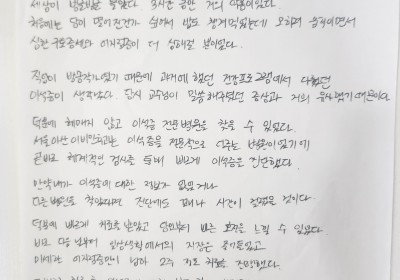 세상이 빙글빙글 돌았다. 3시간 같은 거의 마찬이었다.
처음에는 담이 떨어진건가 싶어서 밥도 챙겨먹었는데 오히려 움직이면서
심한 구토증세와 어지럼증이 더 심해질 뿐이었다.
직업이 방송작가였기 때문에 과거에 했던 건강프로그램에서 다뤘던
이석증이 생각났다. 당시 교수님이 말씀해주셨던 증상과 거의 유사했기 때문이다.
덕분에 헤매지 않고 이석증 전문병원을 찾을 수 있었다.
서울아산이비인후과는 이석증을 전문적으로 다루는 병원이었기에
곧바로 체계적인 검사를 통해 빠르게 이석증을 진단했다.
만약 내가 이석증에 대한 정보가 없었거나
다른 병원으로 찾아갔다면 진단에도 꽤나 시간이 걸렸을 것이다.
덕분에 빠르게 치료를 받았고 당일부터 바로 효과를 느낄 수 있었다.
바로 다음 날부터 일상생활에서의 지장은 줄어들었고
이제는 어지럼증만이 남아 2주 치료를